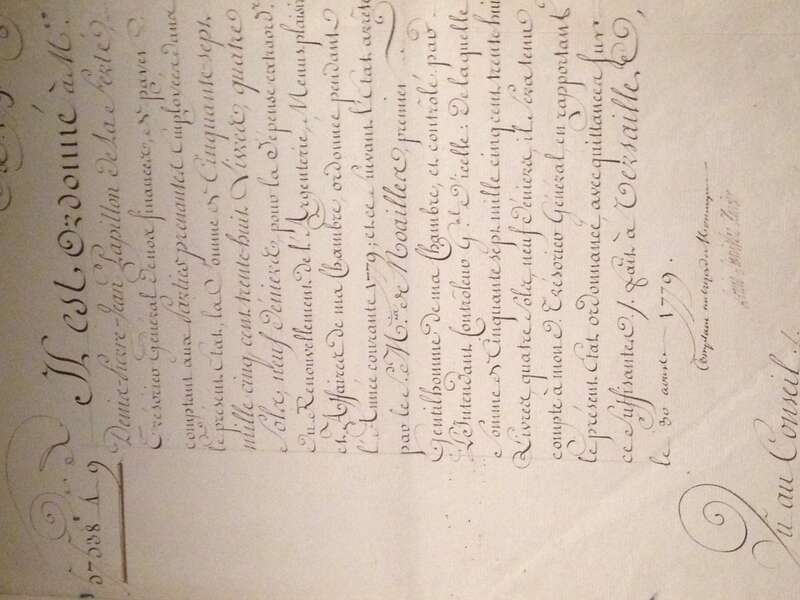 57538ᵗᵗ 4ˢ 9ᵈ
Il est Ordonné à Mᵉ
Denis-Pierre-Jean Papillon de la Ferté,
Trésorier Général de nos finances, de payer
comptant aux Parties prenantes Employées dans
le présent Etat, la Somme de Cinquante sept
mille cinq cent trente huit Livres, quatre
Sols, neuf Deniers pour la Dépense extraordʳᵉ
du Renouvellement de l'Argenterie, Menus, plaisirs
et Affaires de ma Chambre, ordonnée pendant
l'Année courante 1779; et ce suivant l'Etat arrêté
par le S. Mᵃˡ de Noailles, premier
Gentilhomme de ma Chambre, et contrôlé par
L'Intendant, Contrôleur Gᵃˡ D'icelle: De laquelle
Somme de Cinquante sept mille cinq cent trente huit
Livres quatre Sols, neuf deniers, il sera tenu
compte à mond. Trésorier Général en rapportant
le présent Etat, ordonnance, avec quittances sur
ce suffisantes /. fait à Versailles,
le 30 1779.
Vu au Conseil /.